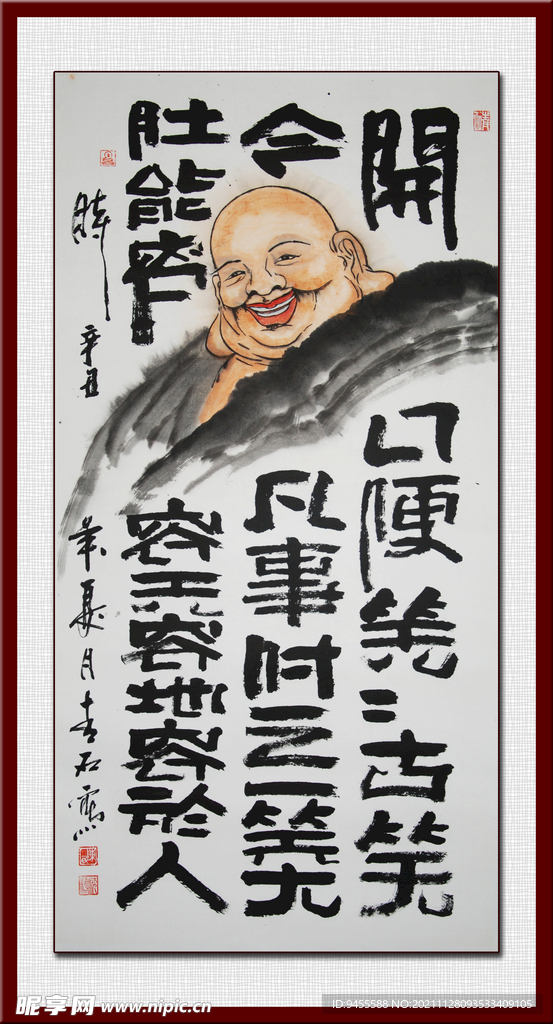 開口便笑々古笑
今凡事付之一笑大
肚能容天容地容於人
時辛丑年夏月石寫
昵享网 www.nipic.cn
ID:9455588 NO:20211128093533409105